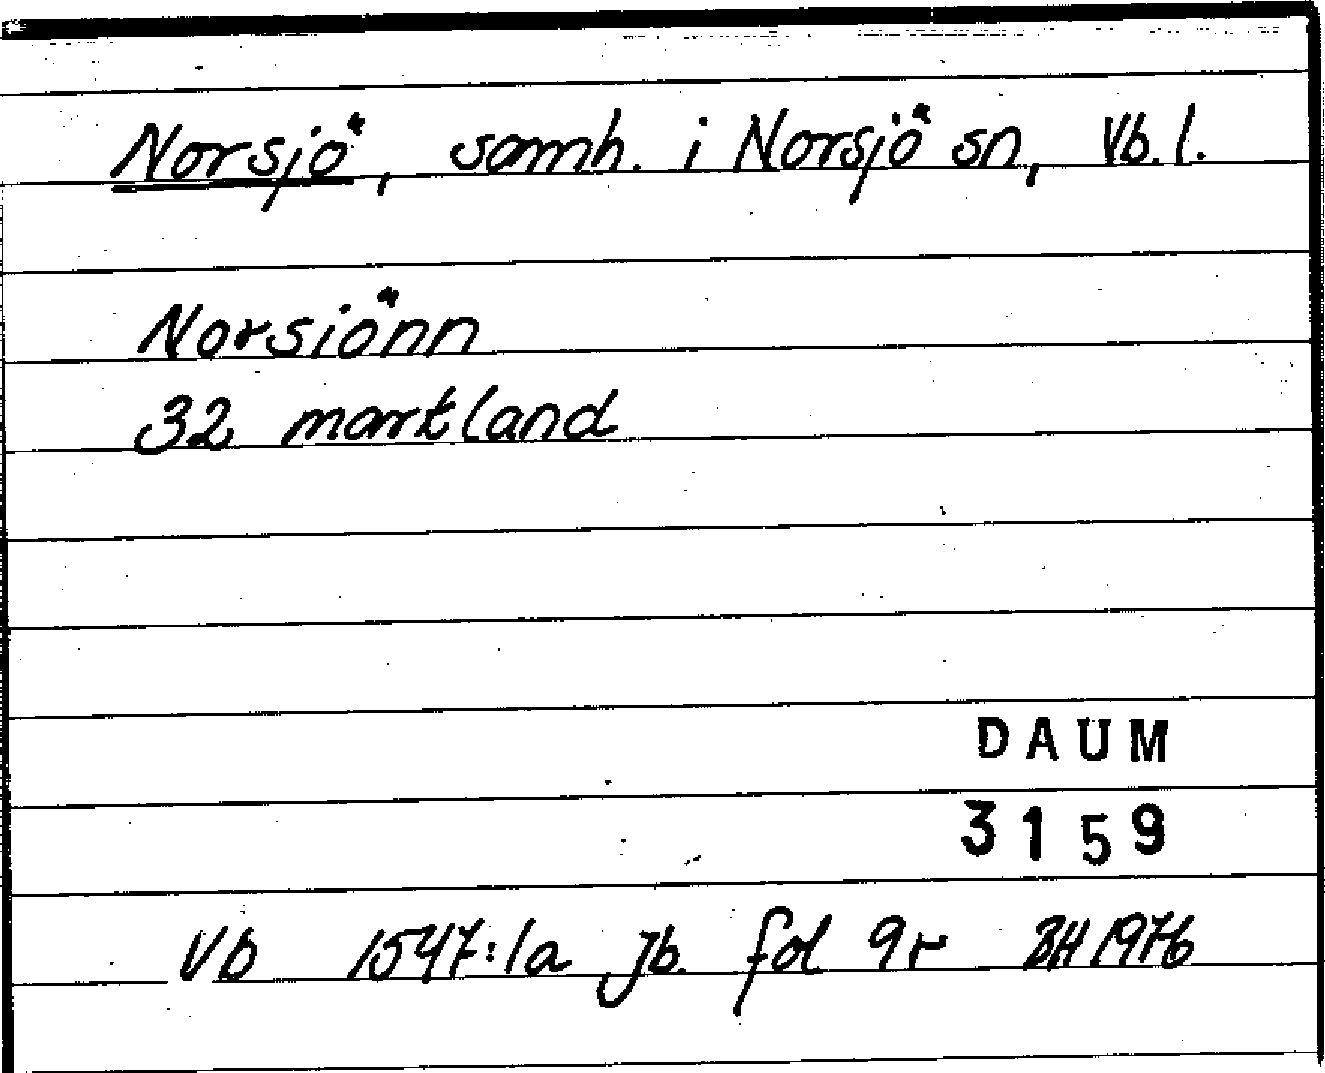 Norsjö, samh. i Norsjö sn, Vb. l.
Norsiönn
32 markland
DAUM
3159
Vb 1547:1a jb. fol 9r BH 1976